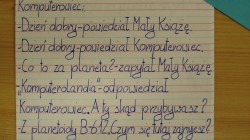 Komputerowiec.
-Dzień dobry-powiedział Mały Książę.
-Dzień dobry-powiedział Komputerowiec.
-Co to za planeta?-zapytał Mały Książę
-"Komputerlandia"-odpowiedział
Komputerowiec. A ty skąd przybywasz?
-Z planetoidy B-612. Czym się tutaj zajmujesz?